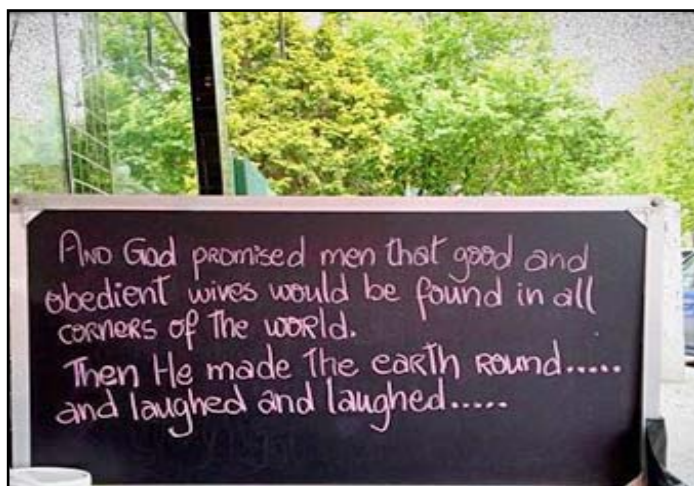 AND God promised men that good and
obedient wives would be found in all
corners of the world.
Then He made the earth round.....
and laughed and laughed.....